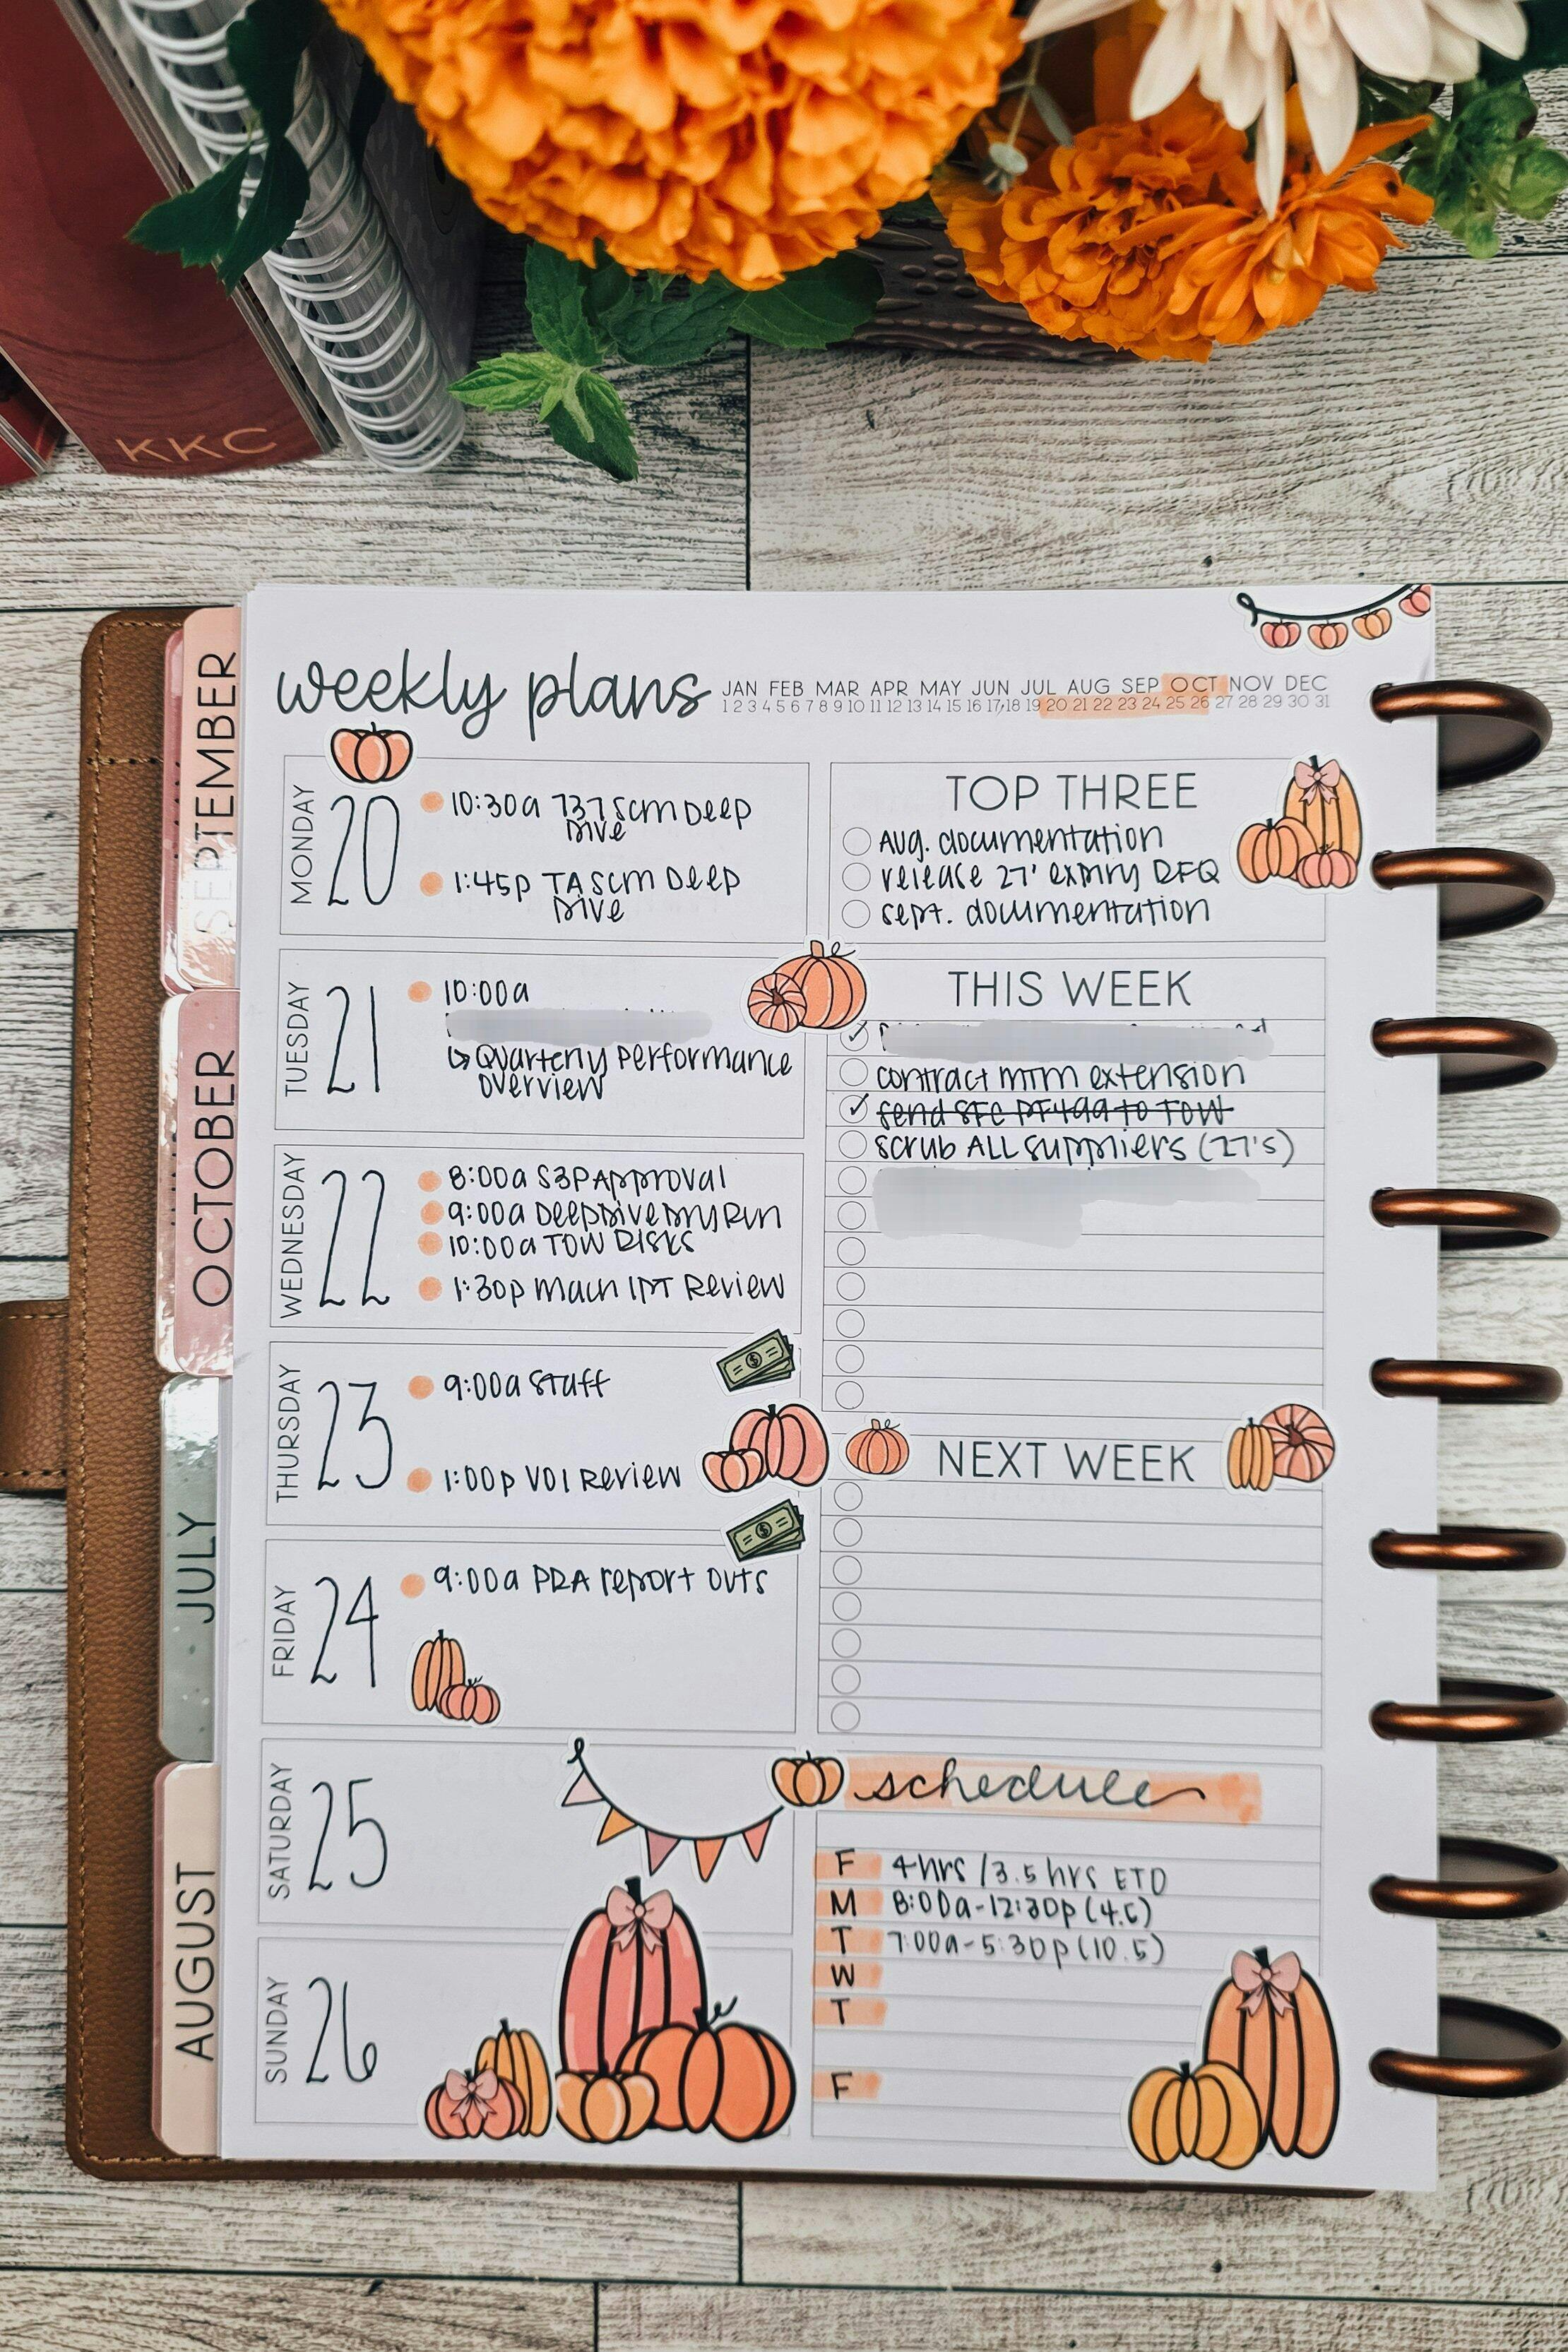 KKC
SEPTEMBER
OCTOBER
JULY
AUGUST
weekly plans
JAN FEB MAR APR MAY JUN JUL AUG SEP OCT NOV DEC
1 2 3 4 5 6 7 8 9 10 11 12 13 14 15 16 17 18 19 20 21 22 23 24 25 26 27 28 29 30 31
MONDAY
20
10:30a 737 SCM Deep
Dive
1:45p TA SCM Deep
Dive
TUESDAY
21
10:00a
↳ Quarterly Performance
Overview
WEDNESDAY
22
8:00a S3P Approval
9:00a Deep Dive Dry Run
10:00a TOW Risks
1:30p Mach IPT Review
THURSDAY
23
9:00a Staff
1:00p VOI Review
FRIDAY
24
9:00a PRA report outs
SATURDAY
25
SUNDAY
26
TOP THREE
Aug. documentation
release 27' expiry RFQ
sept. documentation
THIS WEEK
contract MTM extension
send SFC PF499 to TOW
scrub ALL suppliers (27's)
NEXT WEEK
schedule
F 4hrs / 3.5 hrs ETO
M 8:00a-12:30p (4.5)
T 7:00a-5:30p (10.5)
W
T
F